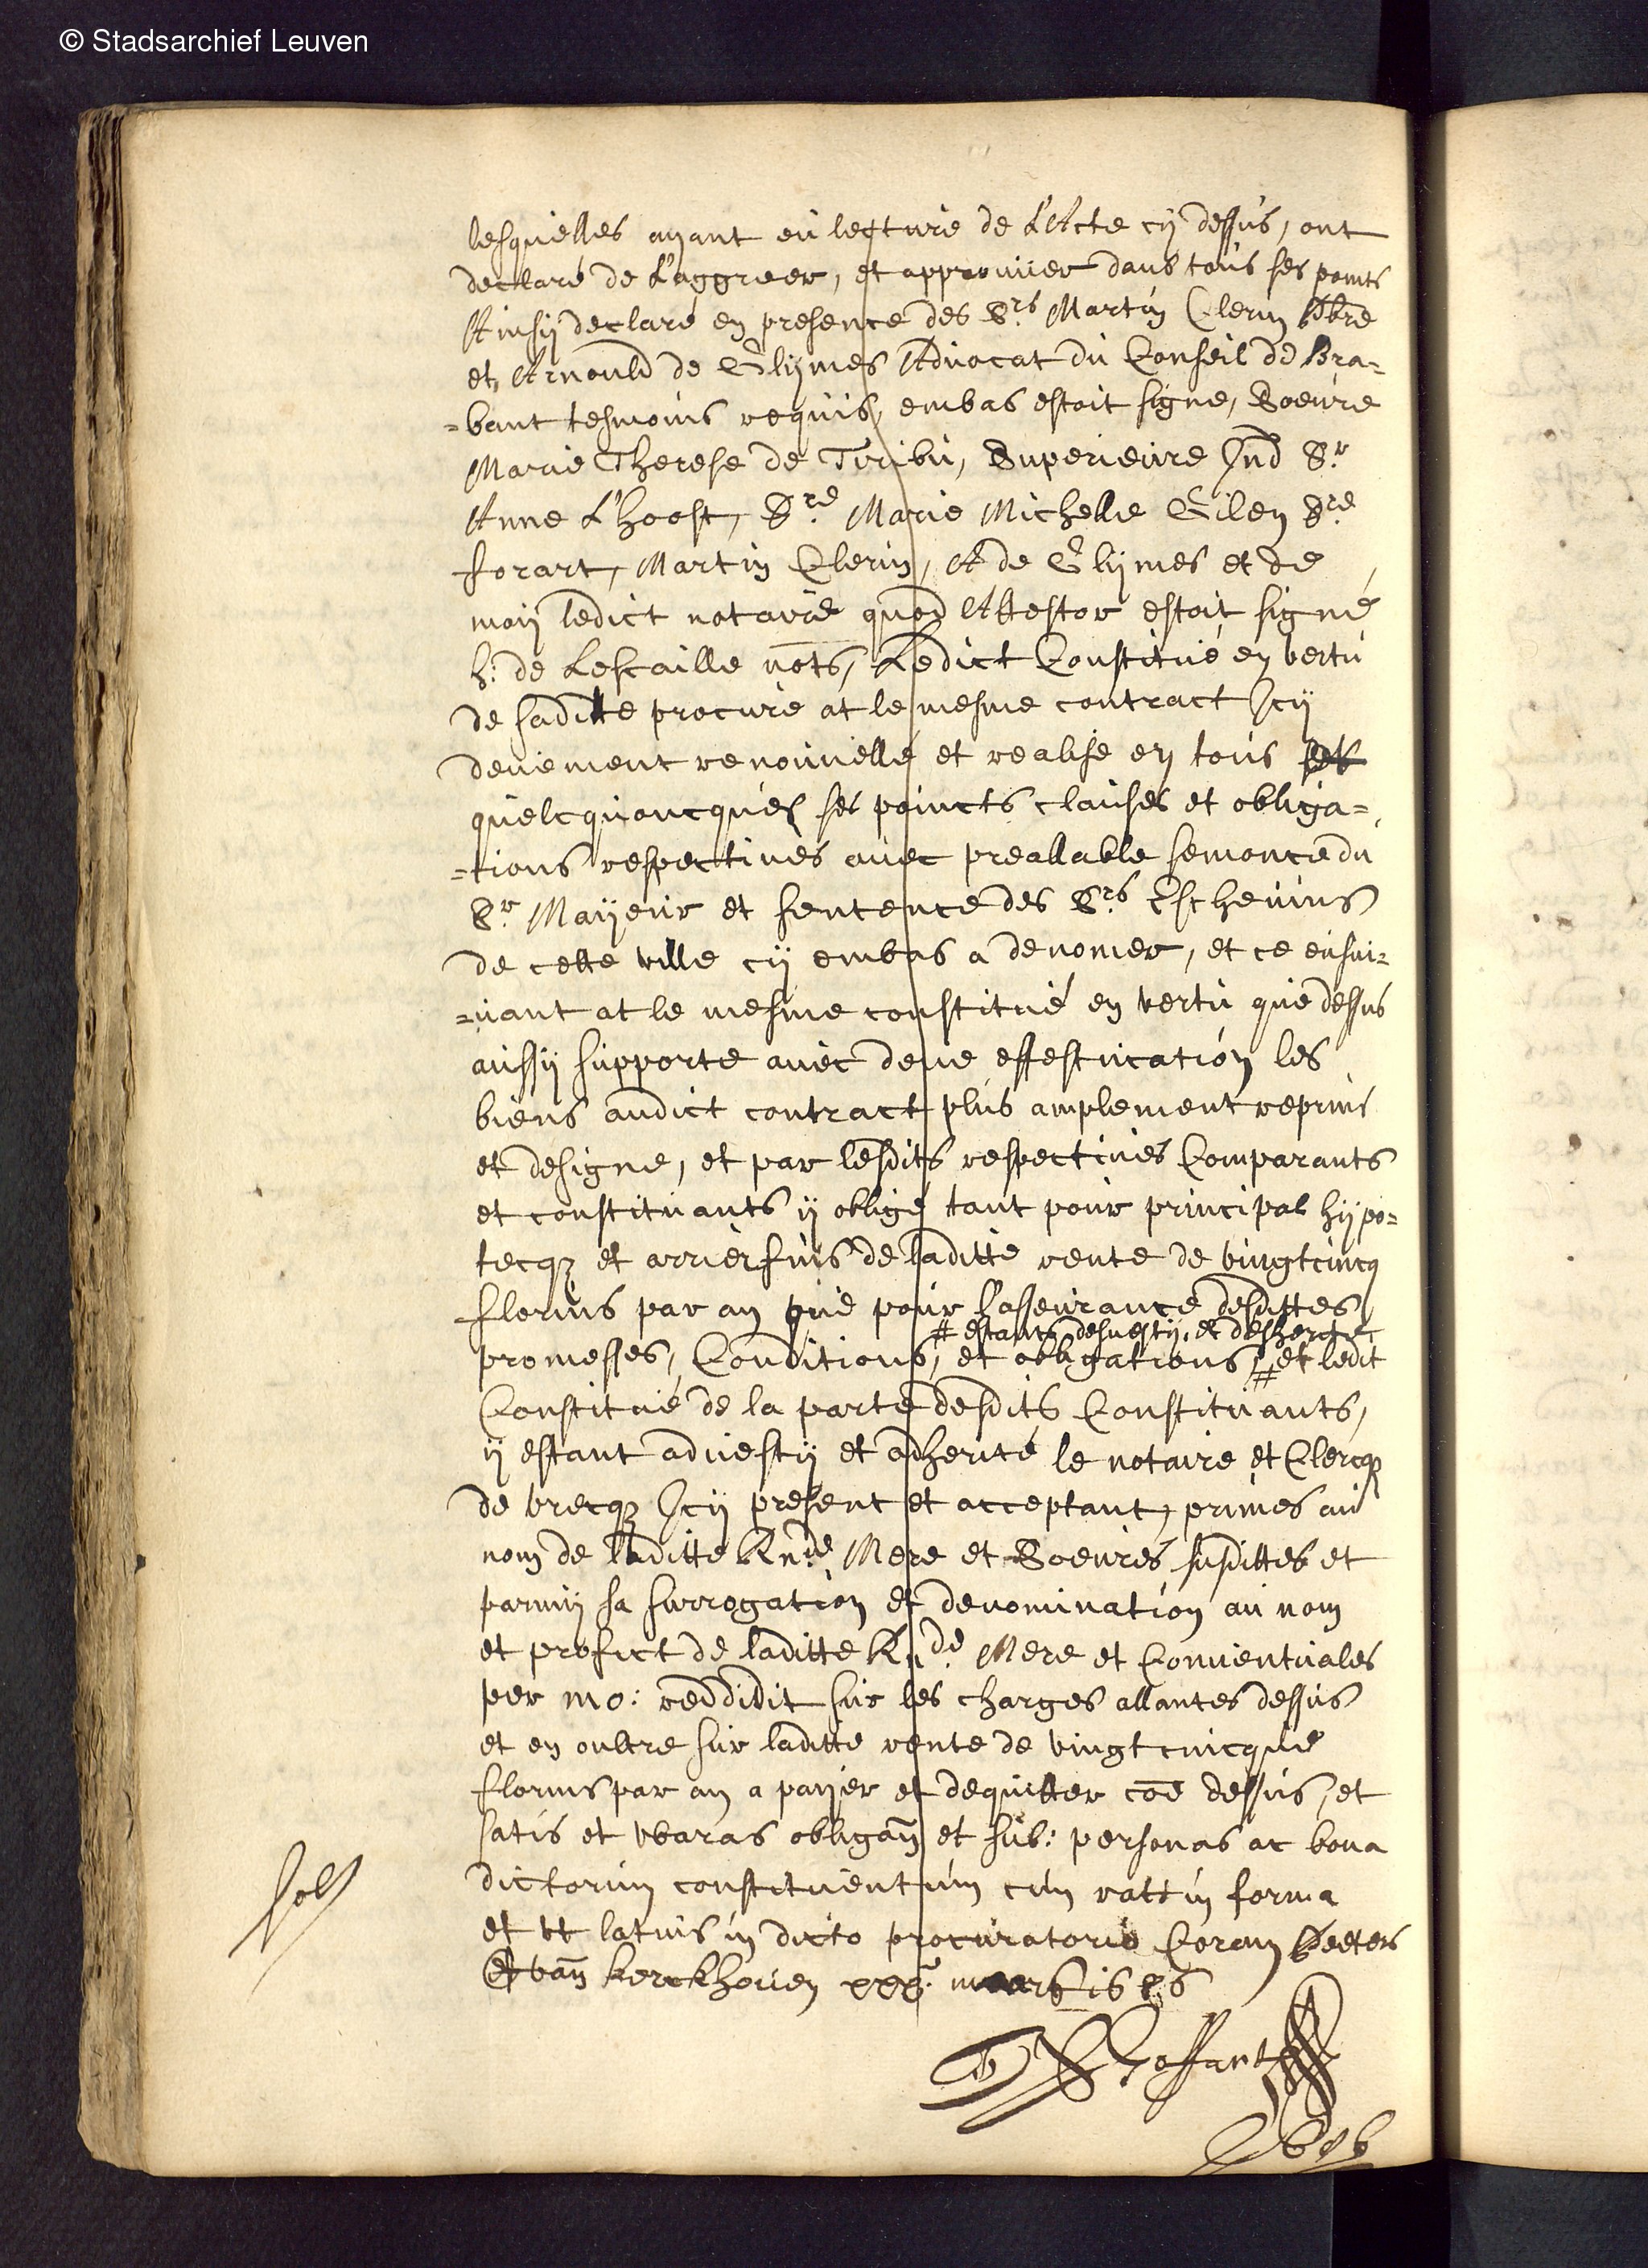 © Stadsarchief Leuven
lesquelles ayant eu lecture de L'Acte cÿ dessus, ont
declaré de L'aggreer, et approuuer dans tous ses points
Ainsÿ declaré en presence des Srs Martin Clerin pbre
et Arnould de Glÿmes Aduocat du Conseil de Bra=
=bant tesmoins requis, embas estoit signe, Soeure
Marie Therese de Tiribu, Superieure Ind Sr
Anne L'hoost, Sre Marie Michelle Gilen Sre
forart, Martin Clerin, A de Glÿmes et de
moÿ ledict notaire quod Attestor estoit signé
h: de Lescaille nots, Ledict Constitué en vertu
de saditte procure at le mesme contract Icÿ
deuement renouuellé et realise en tous
quelcquoncques ses poincts clauses et obliga=
=tions respectiues auec preallable semonce du
Sr Maÿeur et sentence des Srs Escheuins
de cette ville cÿ embas a denomer, et ce ensui=
=uant at le mesme constitué en vertu que dessus
aussÿ supporte auec deue effestucation les
biens audict contract plus amplement reprins
et designe, et par lesdits respectiues Comparants
et constituants ÿ obligé tant pour principal hÿpo=
tecq et arrierfuis de laditte rente de vingtcincq
florins par an que pour l'asseurance desdittes
# estants desuestÿ, et desherité
promesses, Conditions, et obligations, # et ledit
Constitué de la parte desdits Constituants,
ÿ estant aduestÿ et adherité le notaire et Clercq
de brecq Icÿ present et acceptant, primes au
nom de laditte Rnde Mere et Soeures susdittes et
parmÿ sa surrogation et denomination au nom
et profict de laditte Rnde Mere et Conuentuales
per mo: reddidit sur les charges allantes dessus
et en oultre sur laditte rente de vingt cincque
florins par an a paÿer et dequitter coe dessus, et
satis et waras obligan et sub: personas ac bona
dictorum constituentium cum ratt in forma
et vt latius in dicto procuratorio Coram Peeters
et van Kerckhouen
solt